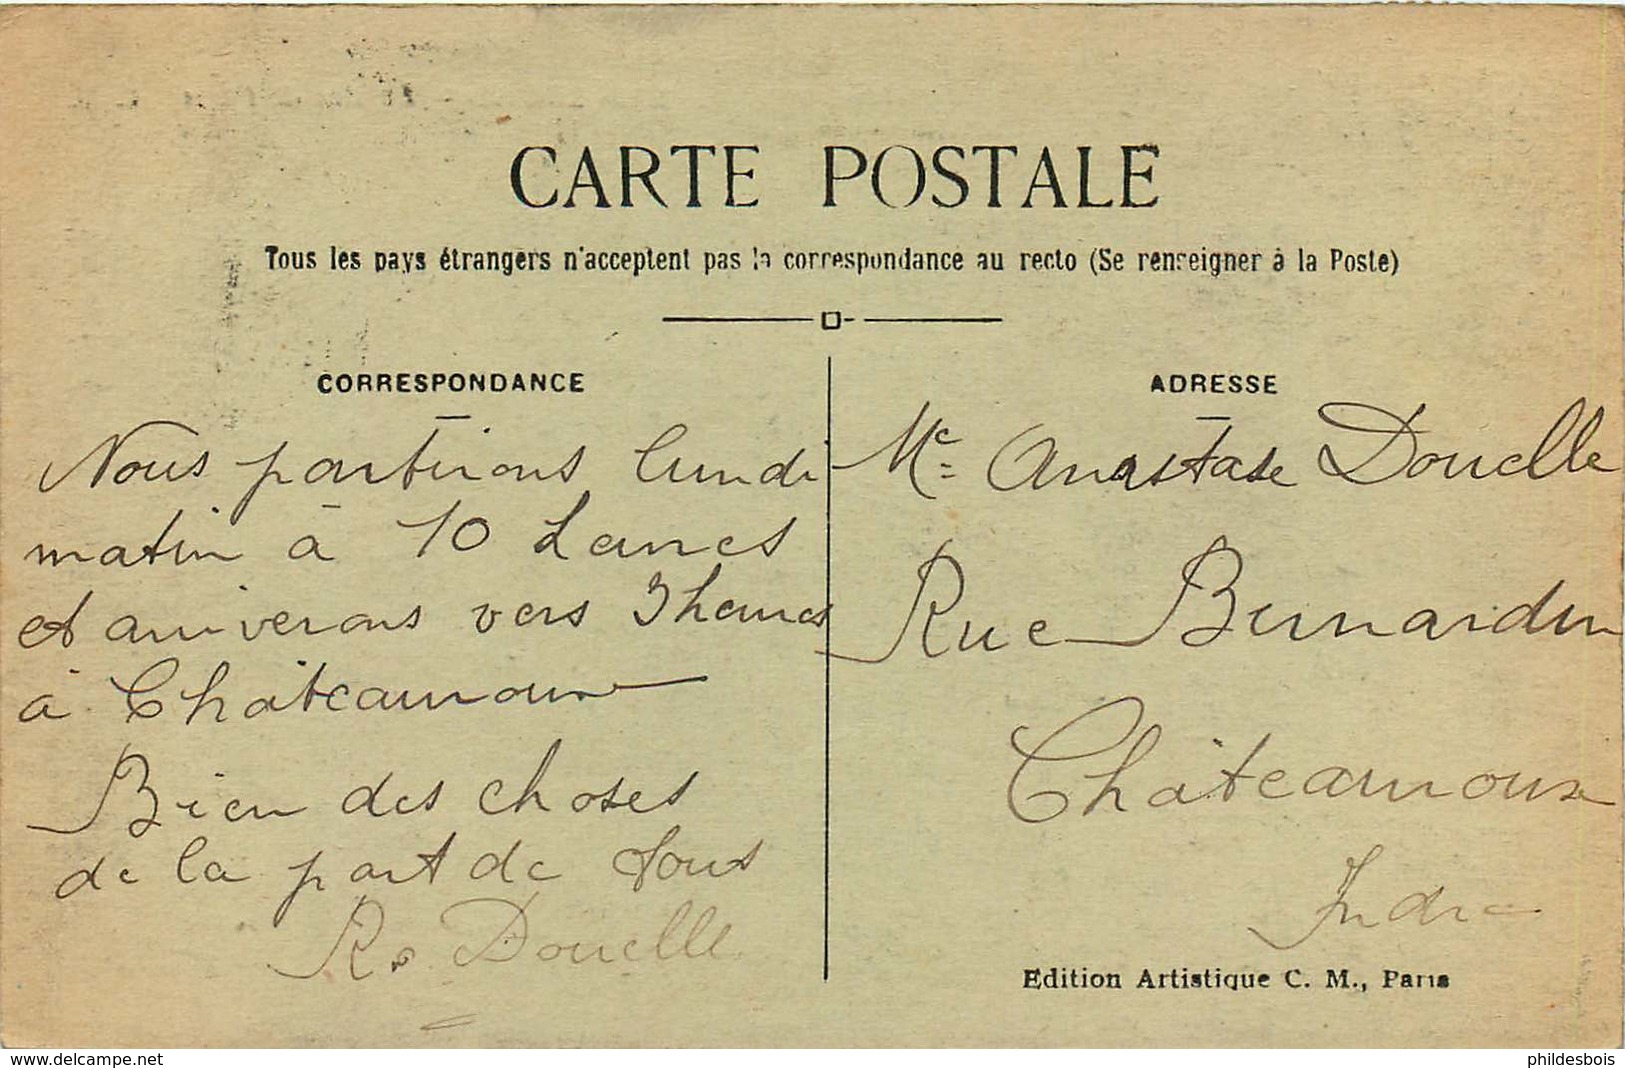 CARTE POSTALE
Tous les pays étrangers n'acceptent pas la correspondance au recto (Se renseigner à la Poste)
CORRESPONDANCE
Nous partirons lundi
matin à 10 heures
et arriverons vers 3 heures
à Châteauroux
Bien des choses
de la part de tous
R. Douelle
ADRESSE
Me Anastase Douelle
Rue Bernardin
Châteauroux
Indre
Edition Artistique C. M., Paris
www.delcampe.net
phildesbois